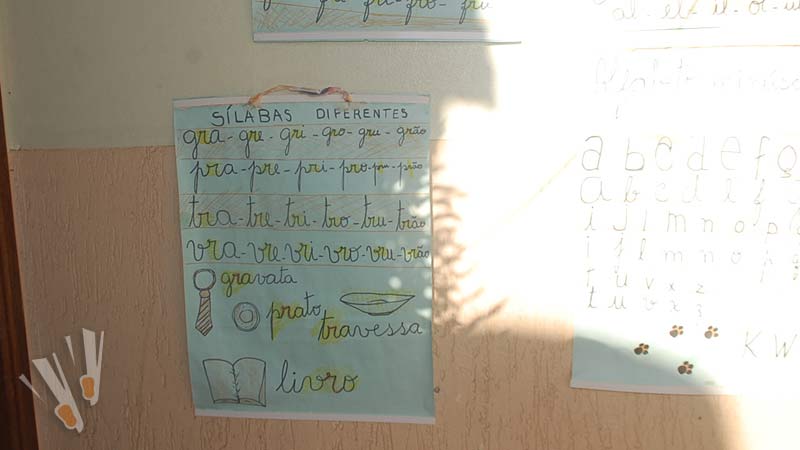 fri - fro - fru
al - el - il - ol - ul
SÍLABAS DIFERENTES
gra - gre - gri - gro - gru - grão
pra - pre - pri - pro - pru - prão
tra - tre - tri - tro - tru - trão
vra - vre - vri - vro - vru - vrão
gravata
prato
travessa
livro
a b c d e f g
a b c d e f
i j l m n o p q
i j l m n o p q
t u v x z
t u v x z
K W